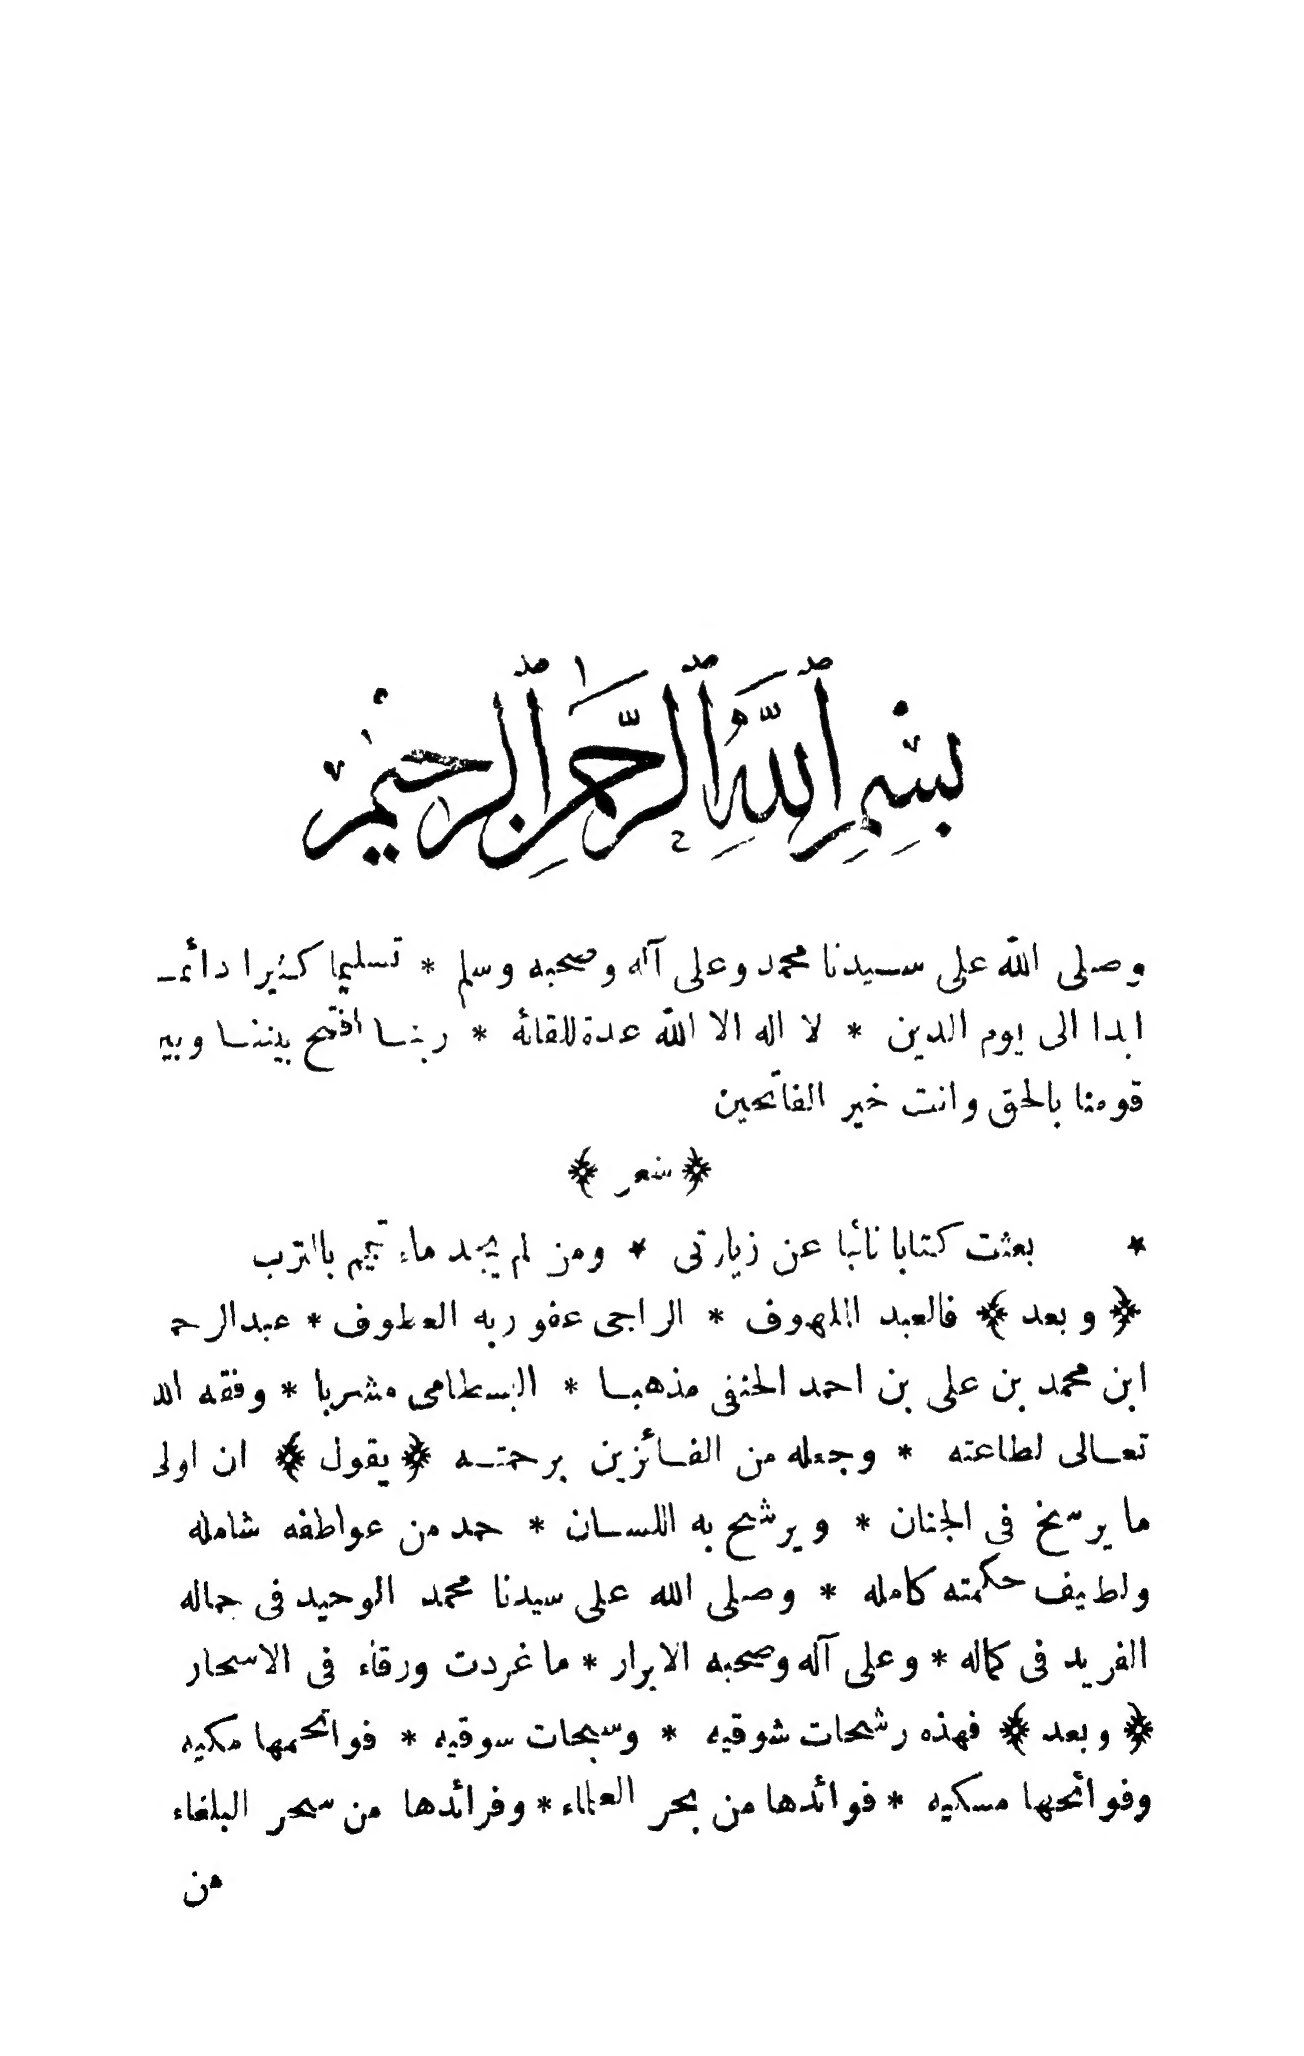 بِسْمِ ٱللَّهِ ٱلرَّحْمَٰنِ ٱلرَّحِيمِ
وصلى الله على سيدنا محمد وعلى آله وصحبه وسلم * تسليما كثيرا دائمـ
ابدا الى يوم الدين * لا اله الا الله عدة للقائه * ربنا افتح بيننا وبيـ
قومنا بالحق وانت خير الفاتحين
﴿ شعر ﴾
* بعثت كتابا نائبا عن زيارتى * ومن لم يجد ماء تيمم بالترب
﴿ وبعد ﴾ فالعبد الملهوف * الراجى عفو ربه العطوف * عبدالرحمـ
ابن محمد بن على بن احمد الحنفى مذهبا * البسطامى مشربا * وفقه اللـ
تعالى لطاعته * وجعله من الفائزين برحمته ﴿ يقول ﴾ ان اولى
ما يرسخ فى الجنان * ويرشح به اللسان * حمد من عواطفه شامله
ولطيف حكمته كامله * وصلى الله على سيدنا محمد الوحيد فى جماله
الفريد فى كماله * وعلى آله وصحبه الابرار * ما غردت ورقاء فى الاسحار
﴿ وبعد ﴾ فهذه رشحات شوقيه * وسبحات سوقيه * فواتحها مكيه
وفوائحها مسكيه * فوائدها من بحر العلماء * وفرائدها من سحر البلغاء
من